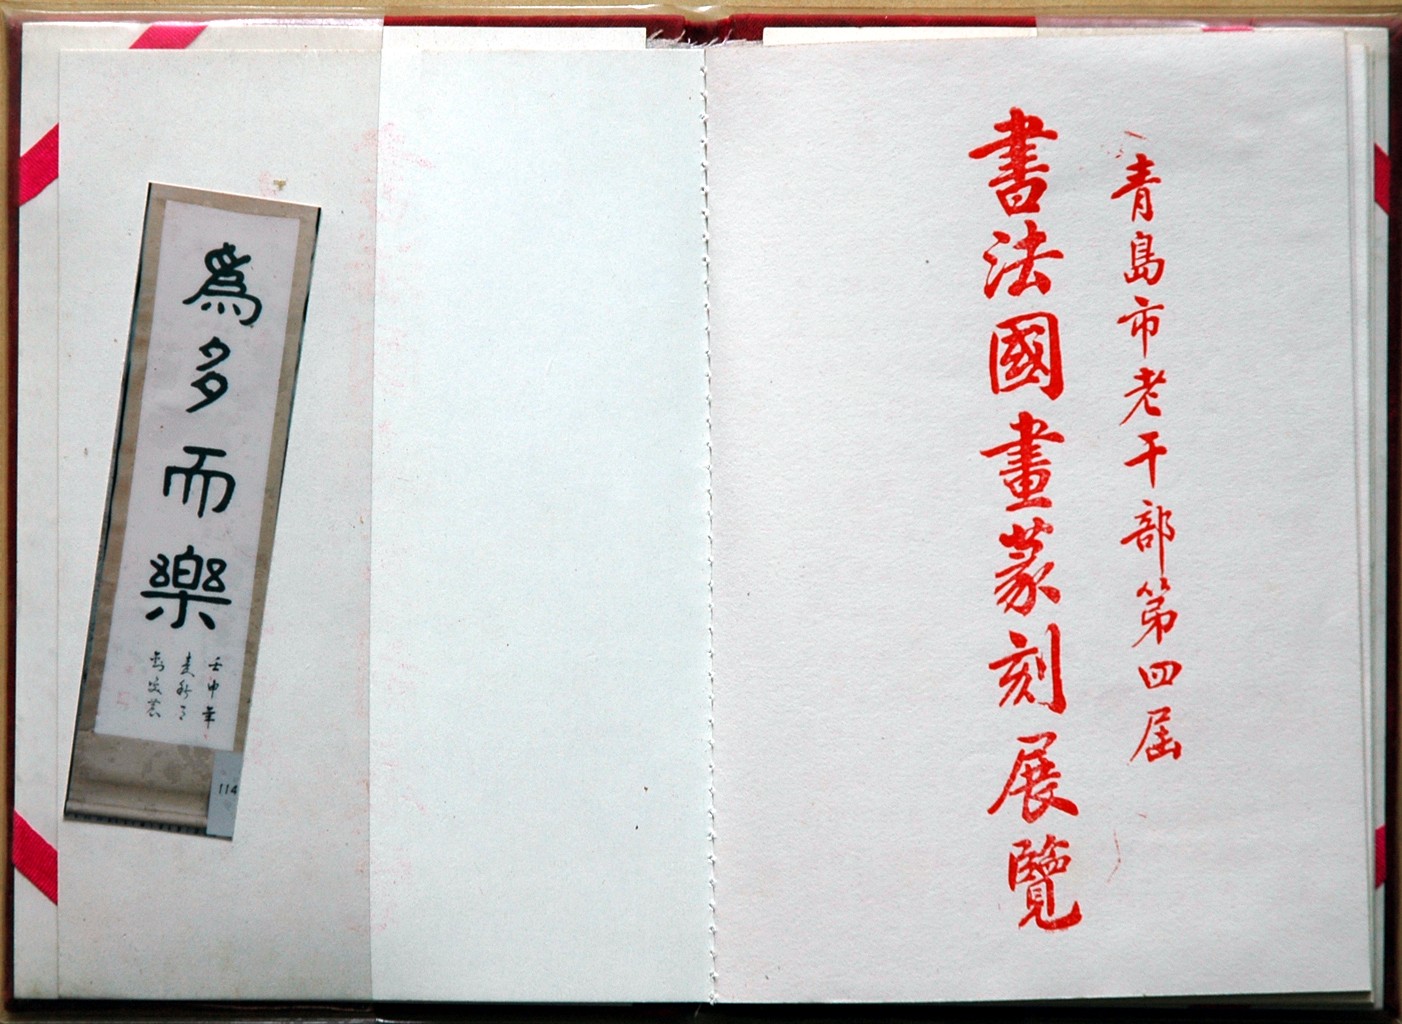 青島市老干部第四届
書法國畫篆刻展覽
為多而樂
壬申年
114